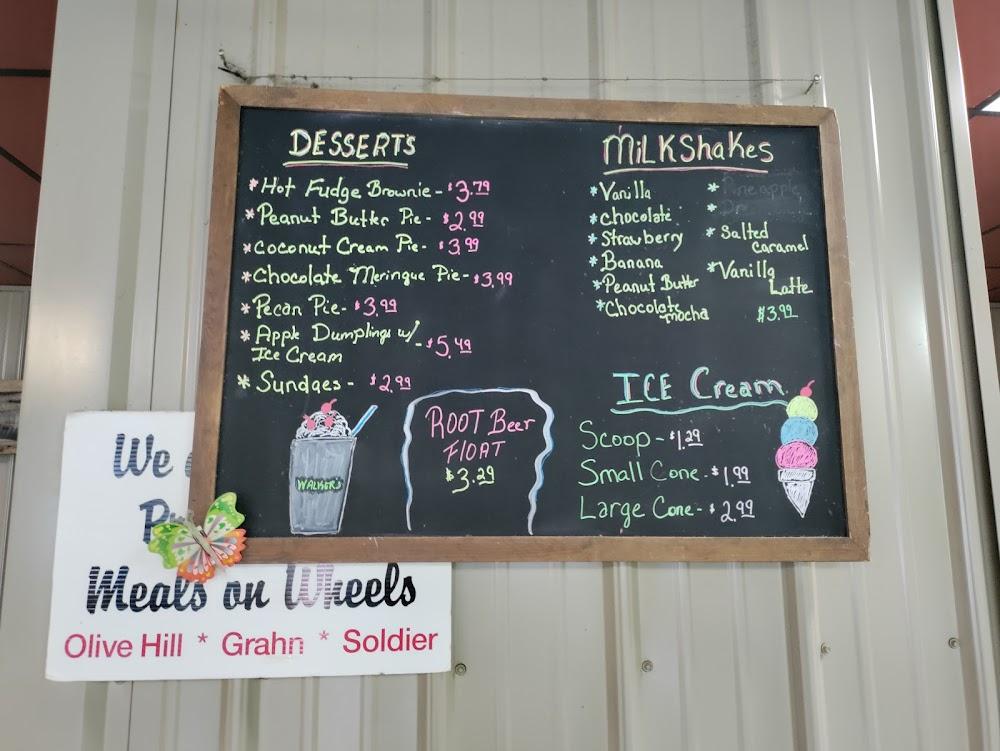 DESSERTS
* Hot Fudge Brownie - $3.79
* Peanut Butter Pie - $2.99
* Coconut Cream Pie - $3.99
* Chocolate Meringue Pie - $3.99
* Pecan Pie - $3.99
* Apple Dumplings w/
Ice Cream - $5.49
* Sundaes - $2.99
WALKER'S
ROOT Beer
FLOAT
$3.29
MiLKShaKes
* Vanilla
* chocolate
* Strawberry
* Banana
* Peanut Butter
* Chocolate
mocha
* Pineapple
*
* Salted
Caramel
* Vanilla
Latte
$3.99
ICE Cream
Scoop - $1.29
Small Cone - $1.99
Large Cone - $2.99
We
Meals on Wheels
Olive Hill * Grahn * Soldier